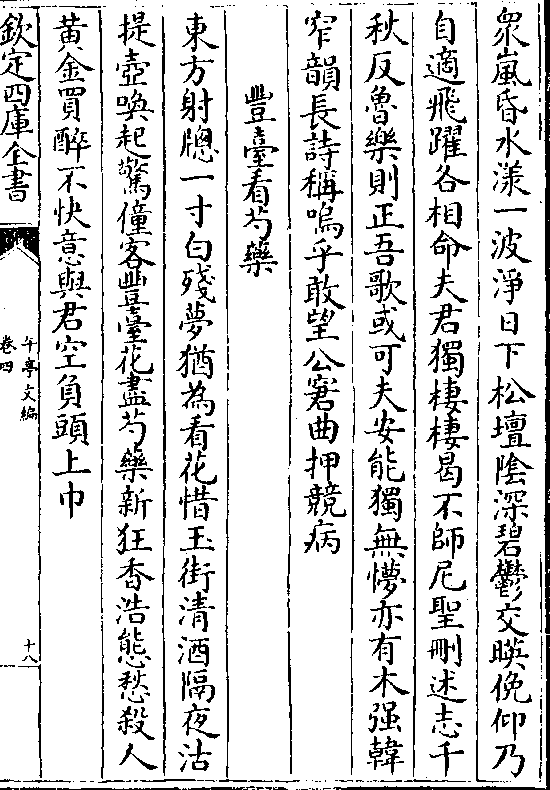 衆嵐昏水漾一波淨日下松壇陰深碧鬱交暎俛仰乃
自適飛躍各相命夫君獨棲棲曷不師尼聖刪述志千
秋反魯樂則正吾歌或可夫安能獨無懜亦有木强韓
窄韻長詩稱嗚乎敢望公窘曲押競病
豐臺看芍藥
東方射牕一寸白殘夢猶為看花惜玉街清酒隔夜沽
提壺喚起驚僮客豐臺花盡芍藥新狂香浩態愁殺人
黃金買醉不快意與君空負頭上巾
欽定四庫全書
午亭文編
卷四
十八